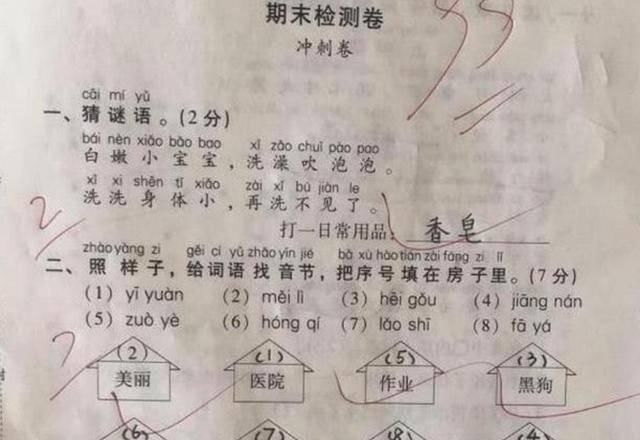 期末检测卷
冲刺卷
cāi mí yǔ
一、猜谜语。(2分)
bái nèn xiǎo bǎo bao xǐ zǎo chuī pào pao
白嫩小宝宝，洗澡吹泡泡。
xǐ xi shēn tǐ xiǎo zài xǐ bú jiàn le
洗洗身体小，再洗不见了。
2
打一日常用品：香皂
zhào yàng zi gěi cí yǔ zhǎo yīn jié bǎ xù hào tián zài fáng zi lǐ
二、照样子，给词语找音节，把序号填在房子里。(7分)
(1) yī yuàn (2) měi lì (3) hēi gǒu (4) jiāng nán
(5) zuò yè (6) hóng qí (7) lǎo shī (8) fā yá
(2) (1) (5) (3)
美丽 医院 作业 黑狗
(6) (7) (8) (4)